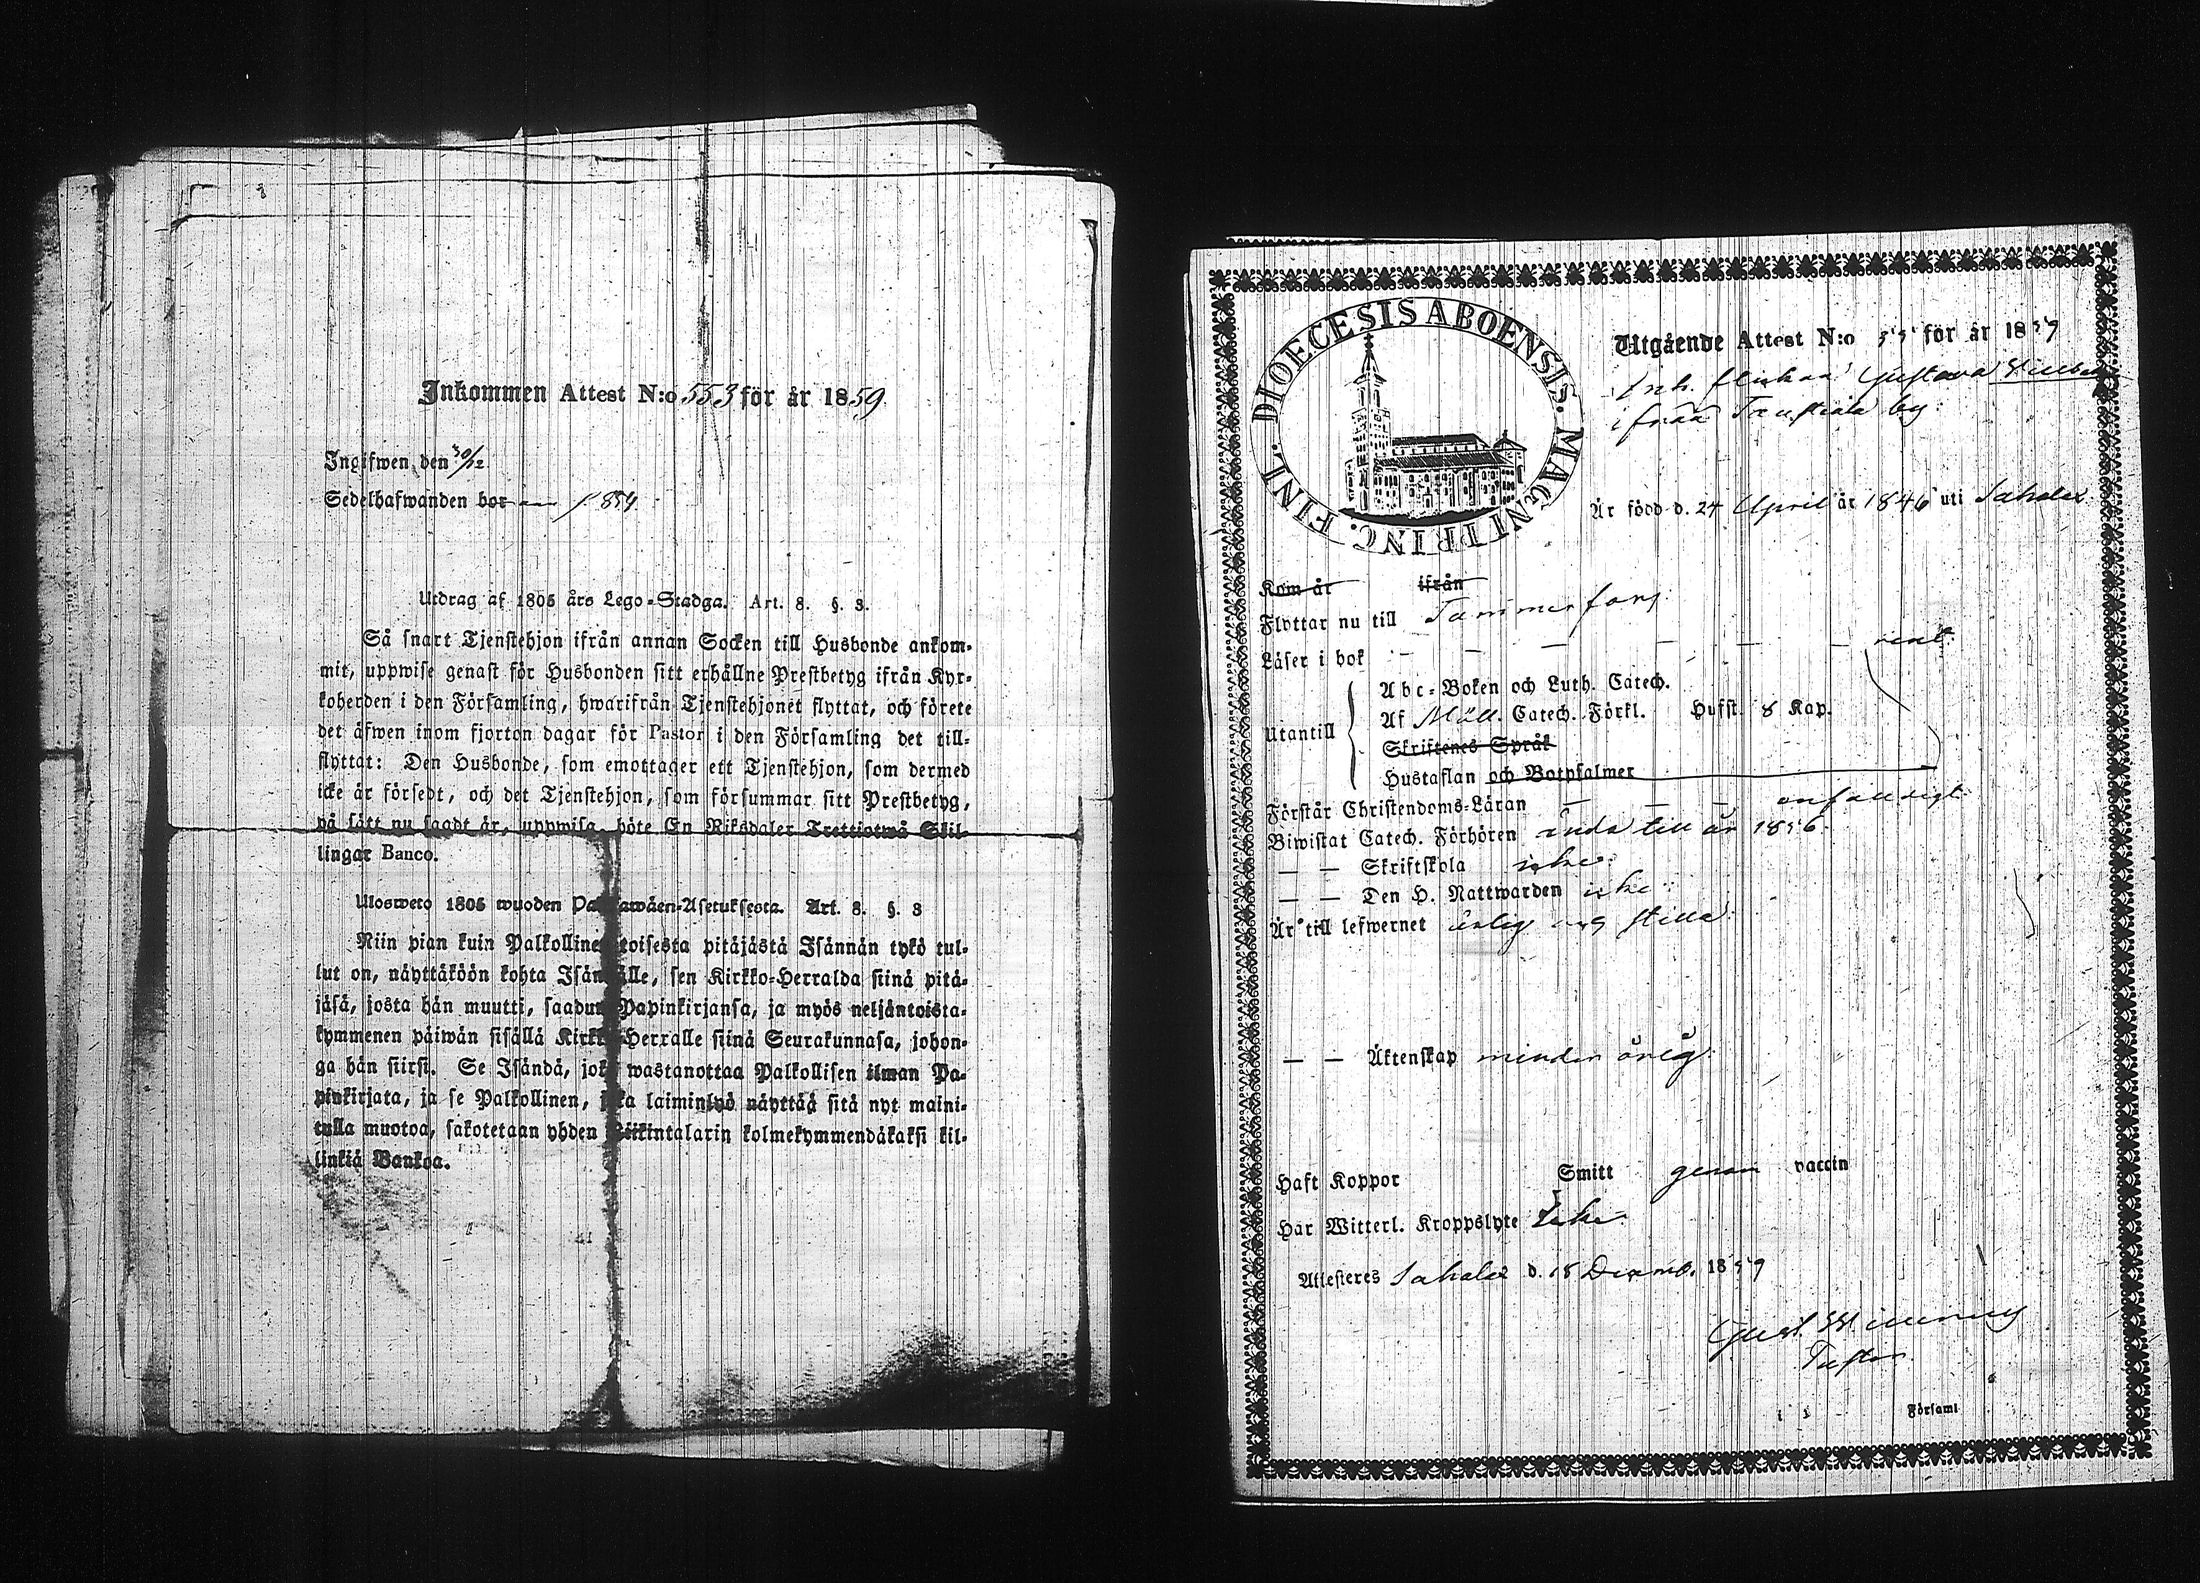 Inkommen Attest N:o 553 för år 1859
Ingifwen den 30/12
Sedelhafwanden bor p. 854
Utdrag af 1805 års Lego-Stadga. Art. 8. §. 3.
Så snart Tjenstehjon ifrån annan Socken till Husbonde ankom-
mit, uppwise genast för Husbonden sitt erhållne Prestbetyg ifrån Kyr-
koherden i den Församling, hwarifrån Tjenstehjonet flyttat, och förete
det äfwen inom fjorton dagar för Pastor i den Församling det till-
flyttat: Den Husbonde, som emottager ett Tjenstehjon, som dermed
icke är försedt, och det Tjenstehjon, som försummar sitt Prestbetyg,
på sätt nu sagdt är, uppwisa, böte En Riksdaler Trettiotwå Skil-
lingar Banco.
Ulosweto 1805 wuoden Palkkawäen-Asetuksesta. Art. 8. §. 3
Niin pian kuin Palkollinen toisesta pitäjästä Isännän tykö tul-
lut on, näyttäköön kohta Isännälle, sen Kirkko-Herralda siinä pitä-
jäsä, josta hän muutti, saadun Papinkirjansa, ja myös neljäntoista-
kymmenen päiwän sisällä Kirkko-Herralle siinä Seurakunnasa, johon-
ga hän siirsi. Se Isändä, joka wastanottaa Palkollisen ilman Pa-
pinkirjata, ja se Palkollinen, joka laiminlyö näyttää sitä nyt maini-
tulla muotoa, sakotetaan yhden Riikintalarin kolmekymmendäkaksi kil-
linkiä Bankoa.
DIOECESIS ABOENSIS. MAGNI PRINC. FINL.
Utgående Attest N:o 55 för år 1859
Inh. flickan Gustava
ifrån by:
Är född d. 24 April år 1846 uti Sahalax
Kom år ifrån
Flyttar nu till Tammerfors.
Läser i bok — — — — — rent.
Utantill
Abc-Boken och Luth. Catech.
Af Möll. Catech. Förkl. Hufst. 8 Kap.
Skriftenes Språk
Hustaflan och Botpsalmer
Förstår Christendoms-Läran — — — enfaldigt.
Biwistat Catech. Förhören ända till år 1856.
— — Skriftskola icke.
— — Den H. Nattwarden icke.
Är till lefwernet ärlig och stilla.
— — Äktenskap minderårig.
Haft Koppor Smitt genom vaccin
Har Witterl. Kroppslyte Icke.
Attesteres Sahalax d. 18 Decemb. 1859
Gust.
Pastor.
i Församl